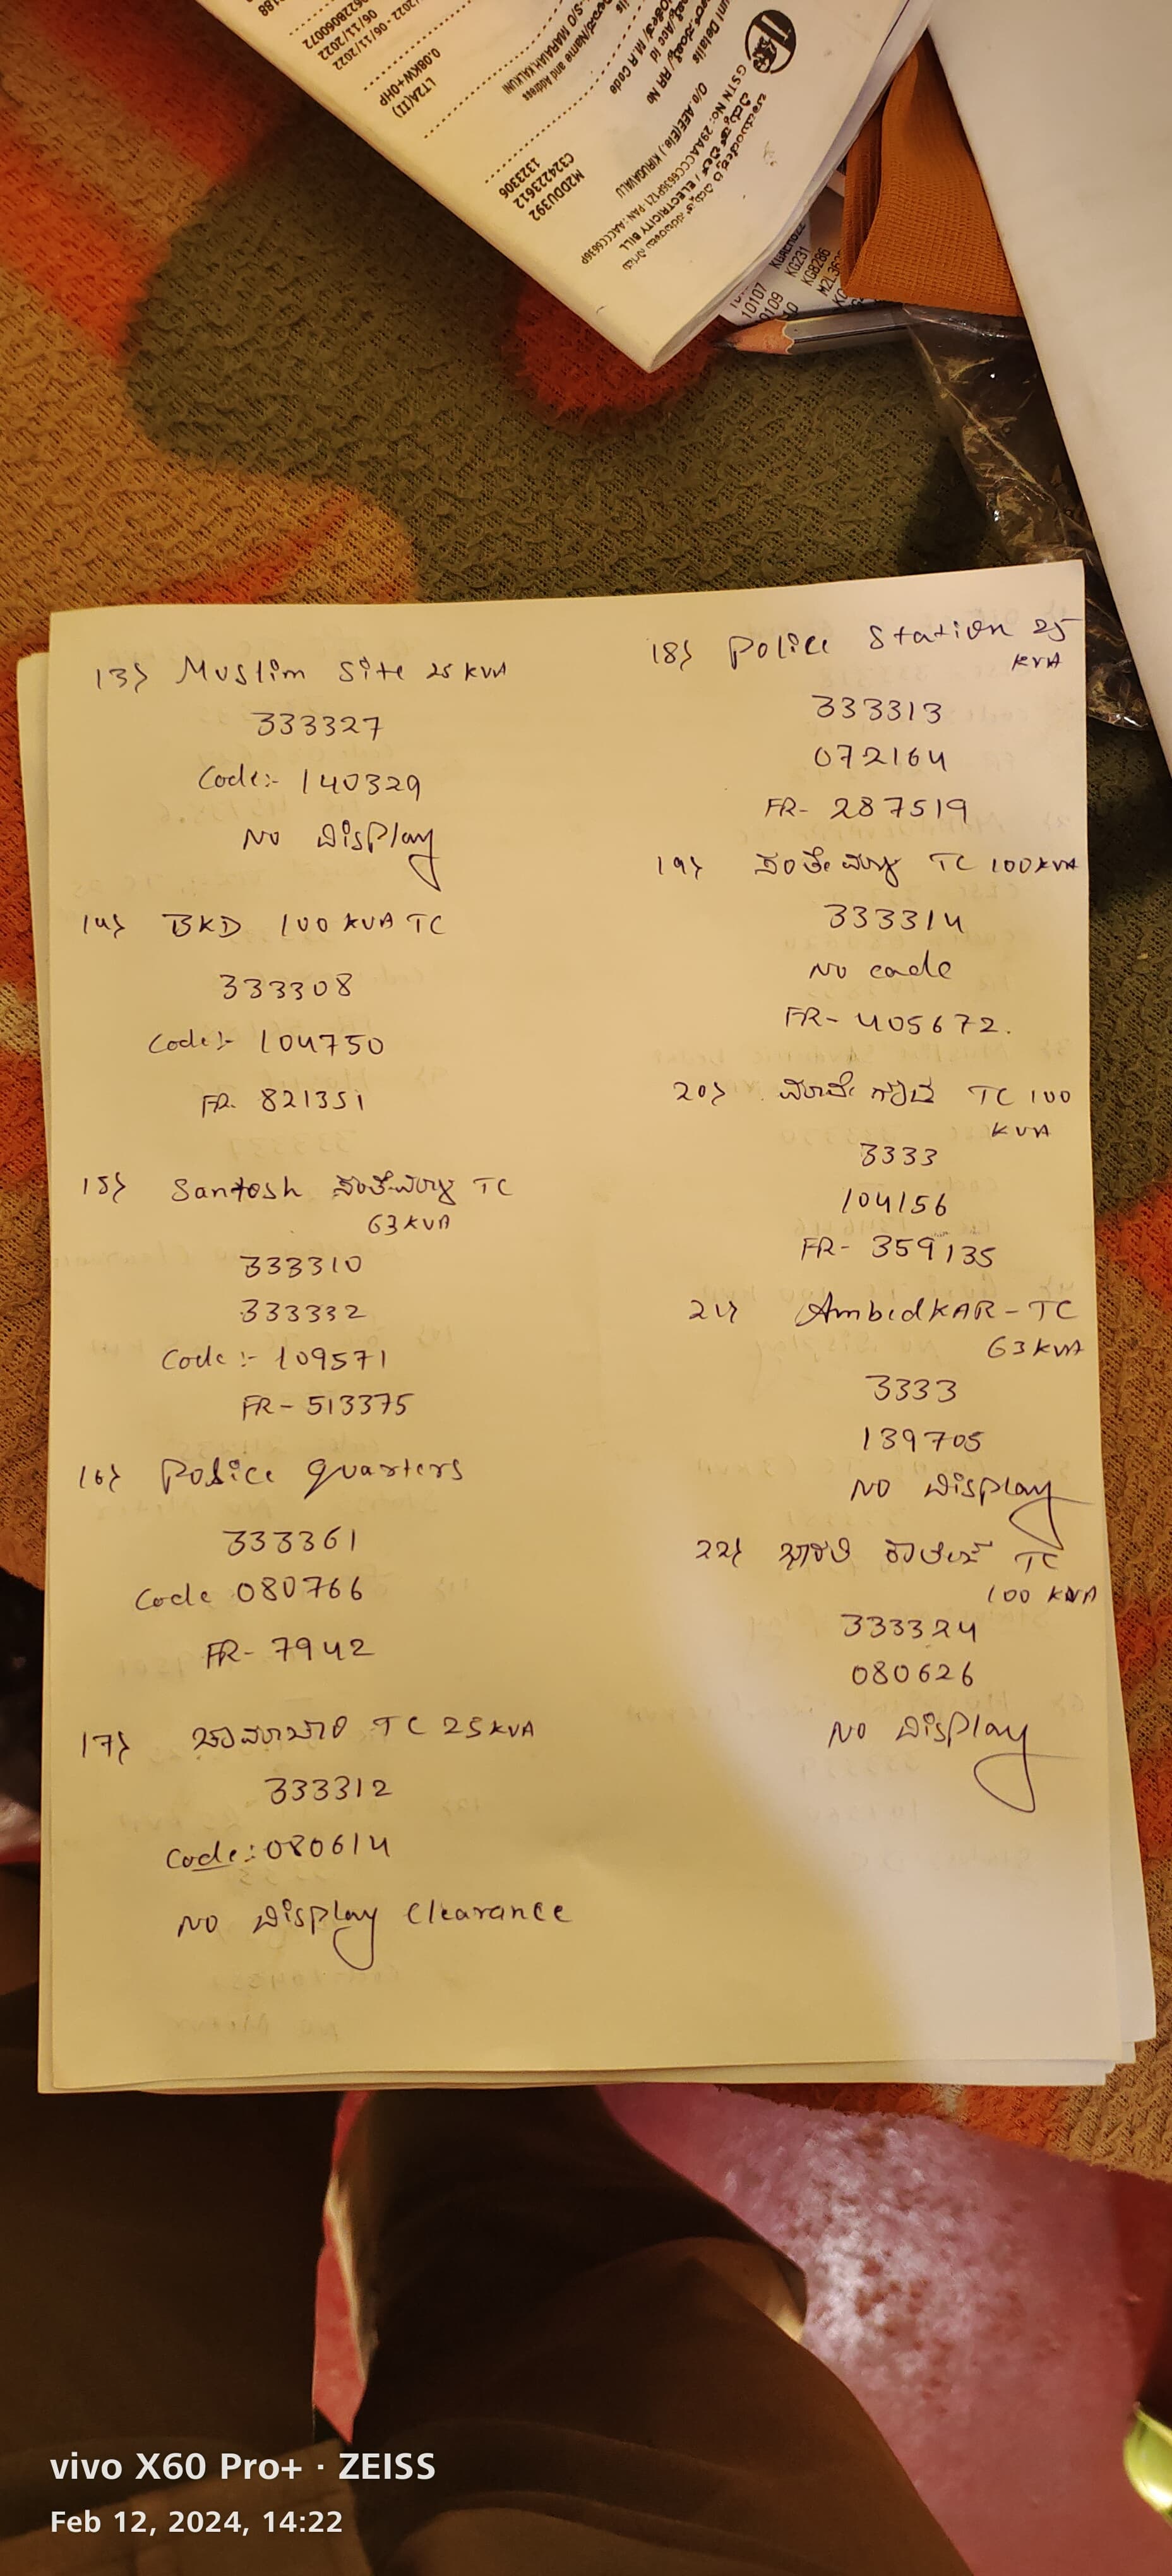 13} Muslim Site 25 KVA
333327
Code:- 140329
NO Display
14} BKD 100 KVA TC
333308
Code:- 104750
FR- 821351
15} Santosh ಸಂತೆಮಾಳ TC
63 KVA
333310
333332
Code :- 109571
FR- 513375
16} Police quarters
333361
Code 080766
FR- 7942
17} TC 25 KVA
333312
Code:- 080614
NO Display Clearance
18} Police Station 25
KVA
333313
072164
FR- 287519
19} ಸಂತೇಮಾಳ TC 100KVA
333314
No code
FR- 405672.
20} ಮಾದೇ ಗೌಡ TC 100
KVA
3333
104156
FR- 359135
21} AmbedKAR-TC
63 KVA
3333
139705
NO Display
22} ಭಾರತಿ ಕಾಲೇಜ್ TC
100 KVA
333324
080626
NO Display
ELECTRICITY BILL
GSTIN No: 29AACCC6636P1Z1 PAN: AACCC6636P
O/o AEE(Ele.) KIRUGAVALU
M2DDU392
C324223612
1323306
LT2A(II)
0.08KW+0HP
06/11/2022
10107
KG231
KG8286
vivo X60 Pro+ · ZEISS
Feb 12, 2024, 14:22